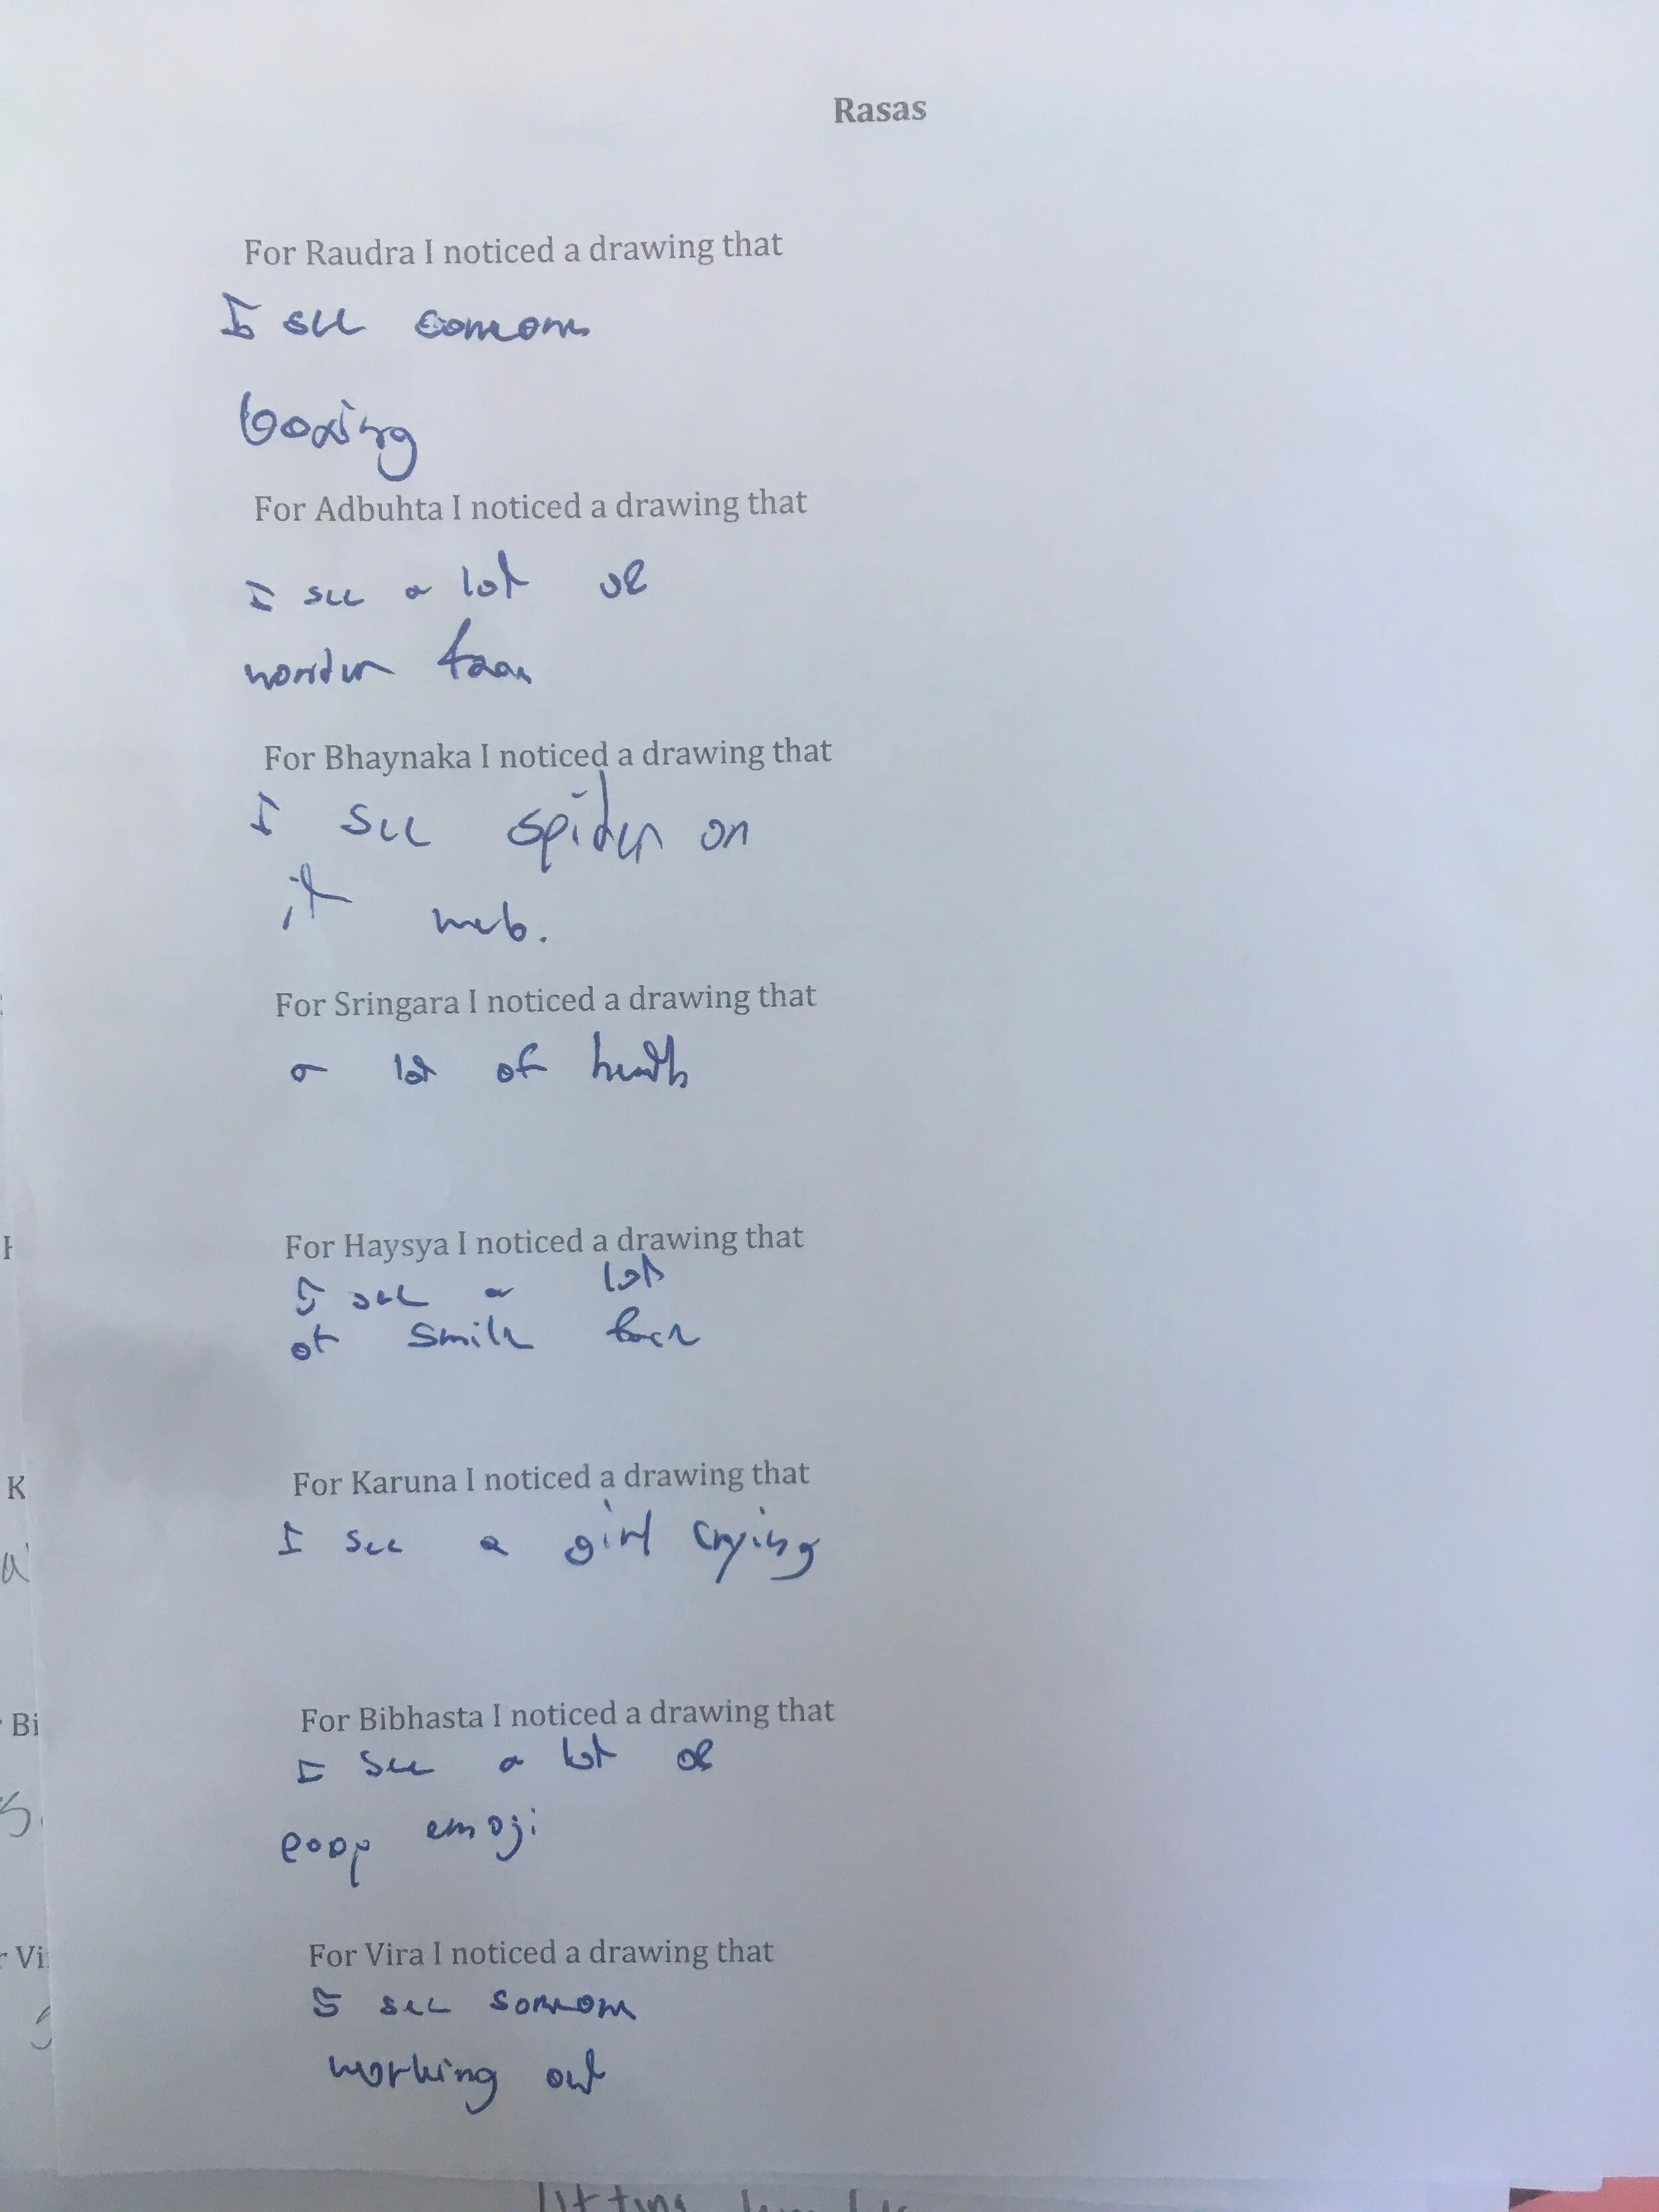 Rasas
For Raudra I noticed a drawing that
I see someone
boxing
For Adbuhta I noticed a drawing that
I see a lot of
wonder
For Bhaynaka I noticed a drawing that
I see spider on
it web.
For Sringara I noticed a drawing that
a lot of
For Haysya I noticed a drawing that
I see a lot
of smile face
For Karuna I noticed a drawing that
I see a girl crying
For Bibhasta I noticed a drawing that
I see a lot of
poop emoji
For Vira I noticed a drawing that
I see someone
working out
K
Bi
Vi